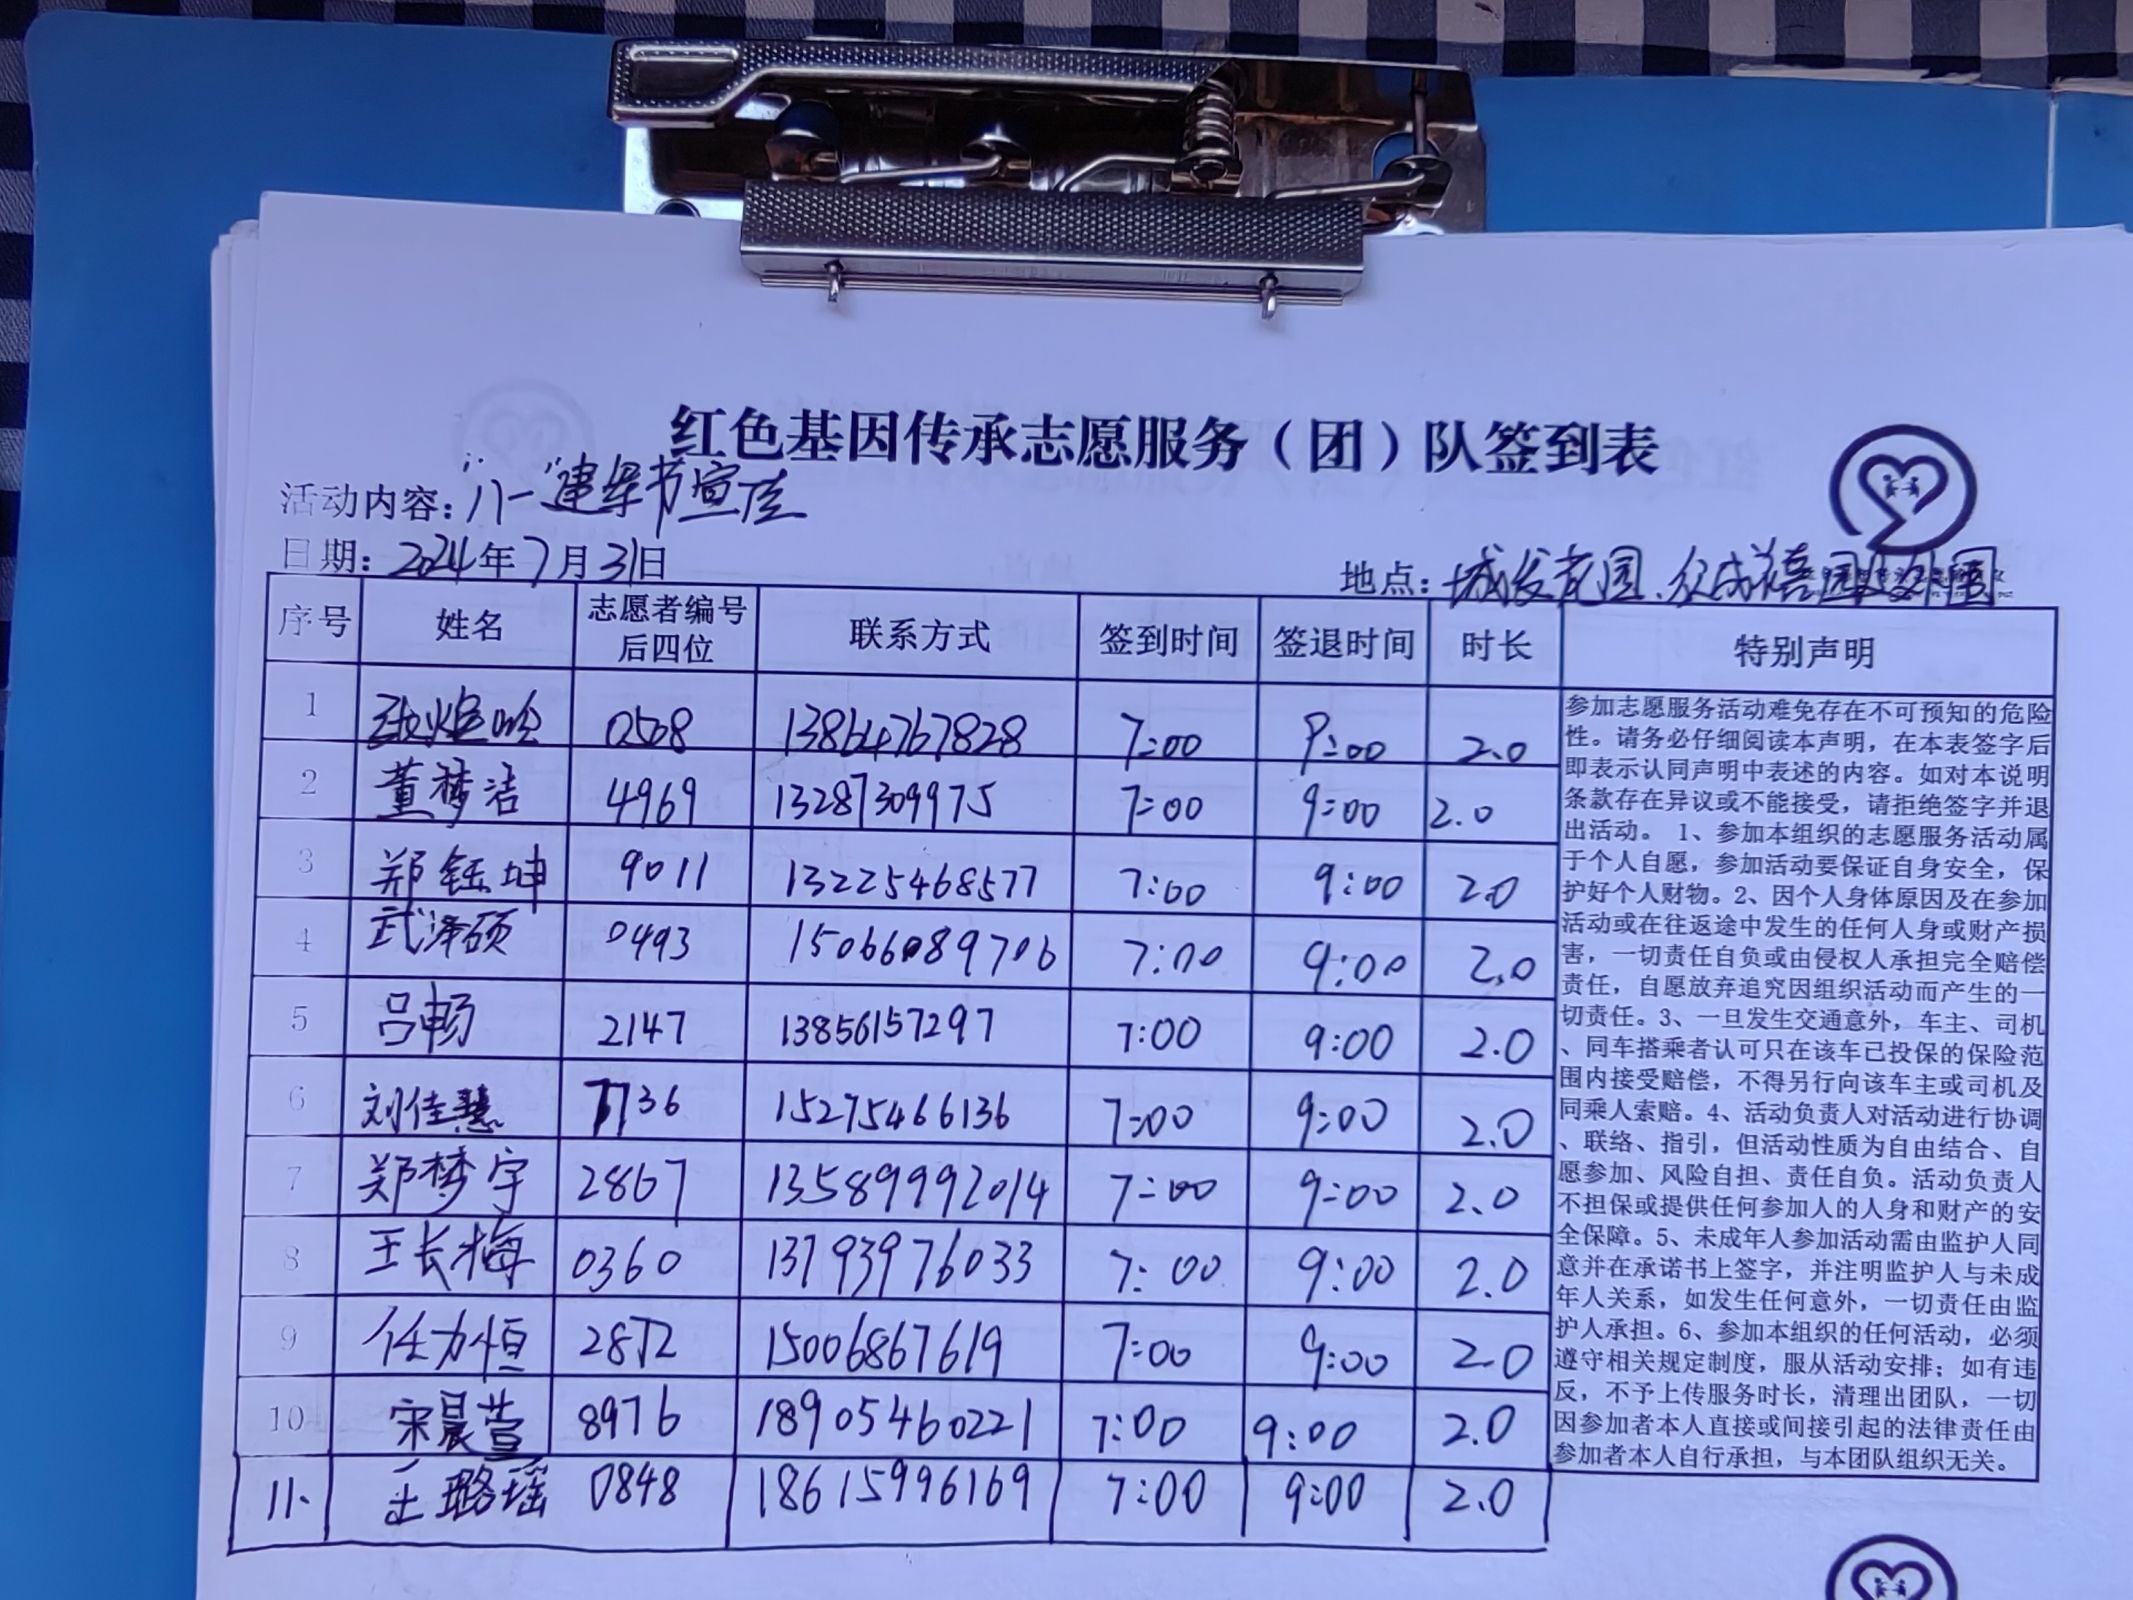 红色基因传承志愿服务（团）队签到表
活动内容：“八一”建军节宣传
日期：2024年7月31日
地点：城发花园、众成禧园
序号 姓名 志愿者编号后四位 联系方式 签到时间 签退时间 时长 特别声明
1 0508 13864767828 7:00 9:00 2.0
2 董梦洁 4969 13287309975 7:00 9:00 2.0
3 郑钰坤 9011 13225468577 7:00 9:00 2.0
4 武泽硕 0493 15066089706 7:00 9:00 2.0
5 吕畅 2147 13856157297 7:00 9:00 2.0
6 刘佳慧 7736 15275466136 7:00 9:00 2.0
7 郑梦宇 2867 13589992014 7:00 9:00 2.0
8 王长梅 0360 13793976033 7:00 9:00 2.0
9 任力恒 2872 15006867619 7:00 9:00 2.0
10 宋晨萱 8976 18905460221 7:00 9:00 2.0
11、 王璐瑶 0848 18615996169 7:00 9:00 2.0
参加志愿服务活动难免存在不可预知的危险
性。请务必仔细阅读本声明，在本表签字后
即表示认同声明中表述的内容。如对本说明
条款存在异议或不能接受，请拒绝签字并退
出活动。 1、参加本组织的志愿服务活动属
于个人自愿，参加活动要保证自身安全，保
护好个人财物。2、因个人身体原因及在参加
活动或在往返途中发生的任何人身或财产损
害，一切责任自负或由侵权人承担完全赔偿
责任，自愿放弃追究因组织活动而产生的一
切责任。3、一旦发生交通意外，车主、司机
、同车搭乘者认可只在该车已投保的保险范
围内接受赔偿，不得另行向该车主或司机及
同乘人索赔。4、活动负责人对活动进行协调
、联络、指引，但活动性质为自由结合、自
愿参加、风险自担、责任自负。活动负责人
不担保或提供任何参加人的人身和财产的安
全保障。5、未成年人参加活动需由监护人同
意并在承诺书上签字，并注明监护人与未成
年人关系，如发生任何意外，一切责任由监
护人承担。6、参加本组织的任何活动，必须
遵守相关规定制度，服从活动安排；如有违
反，不予上传服务时长，清理出团队，一切
因参加者本人直接或间接引起的法律责任由
参加者本人自行承担，与本团队组织无关。